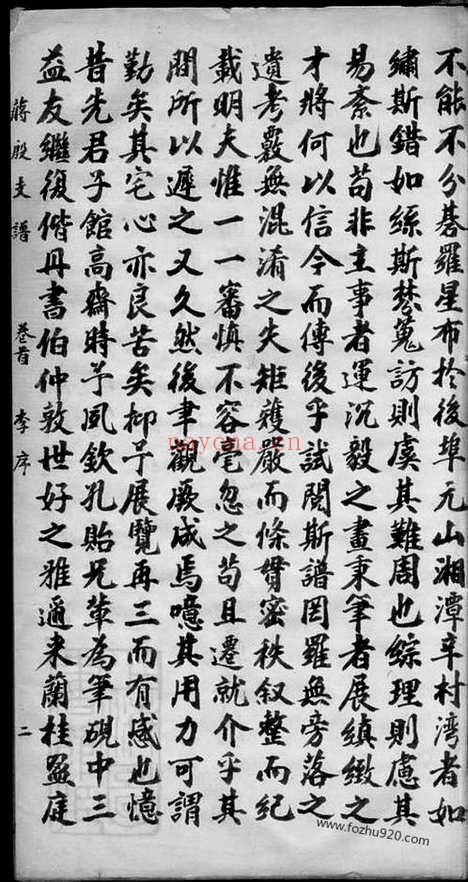 不能不分碁羅星布於後埠元山湘潭辛村湾者如
繡斯錯如絲斯棼蒐訪則虞其難周也綜理則慮其
易紊也苟非主事者運沉毅之畫秉筆者展縝緻之
才將何以信今而傳後乎試閱斯譜罔羅無旁落之
遺考覈無混淆之失矩矱嚴而條貫密秩叙整而紀
載明夫惟一一審慎不容毫忽之苟且遷就介乎其
間所以遲之又久然後聿觀厥成焉噫其用力可謂
勤矣其宅心亦良苦矣抑予展覽再三而有感也憶
昔先君子館高齋時予夙欽孔貽兄輩為筆硯中三
益友繼復偕丹書伯仲敦世好之雅邇来蘭桂盈庭
蔣殷支譜 卷首 李序 二
nayona.cn
www.fozhu920.com